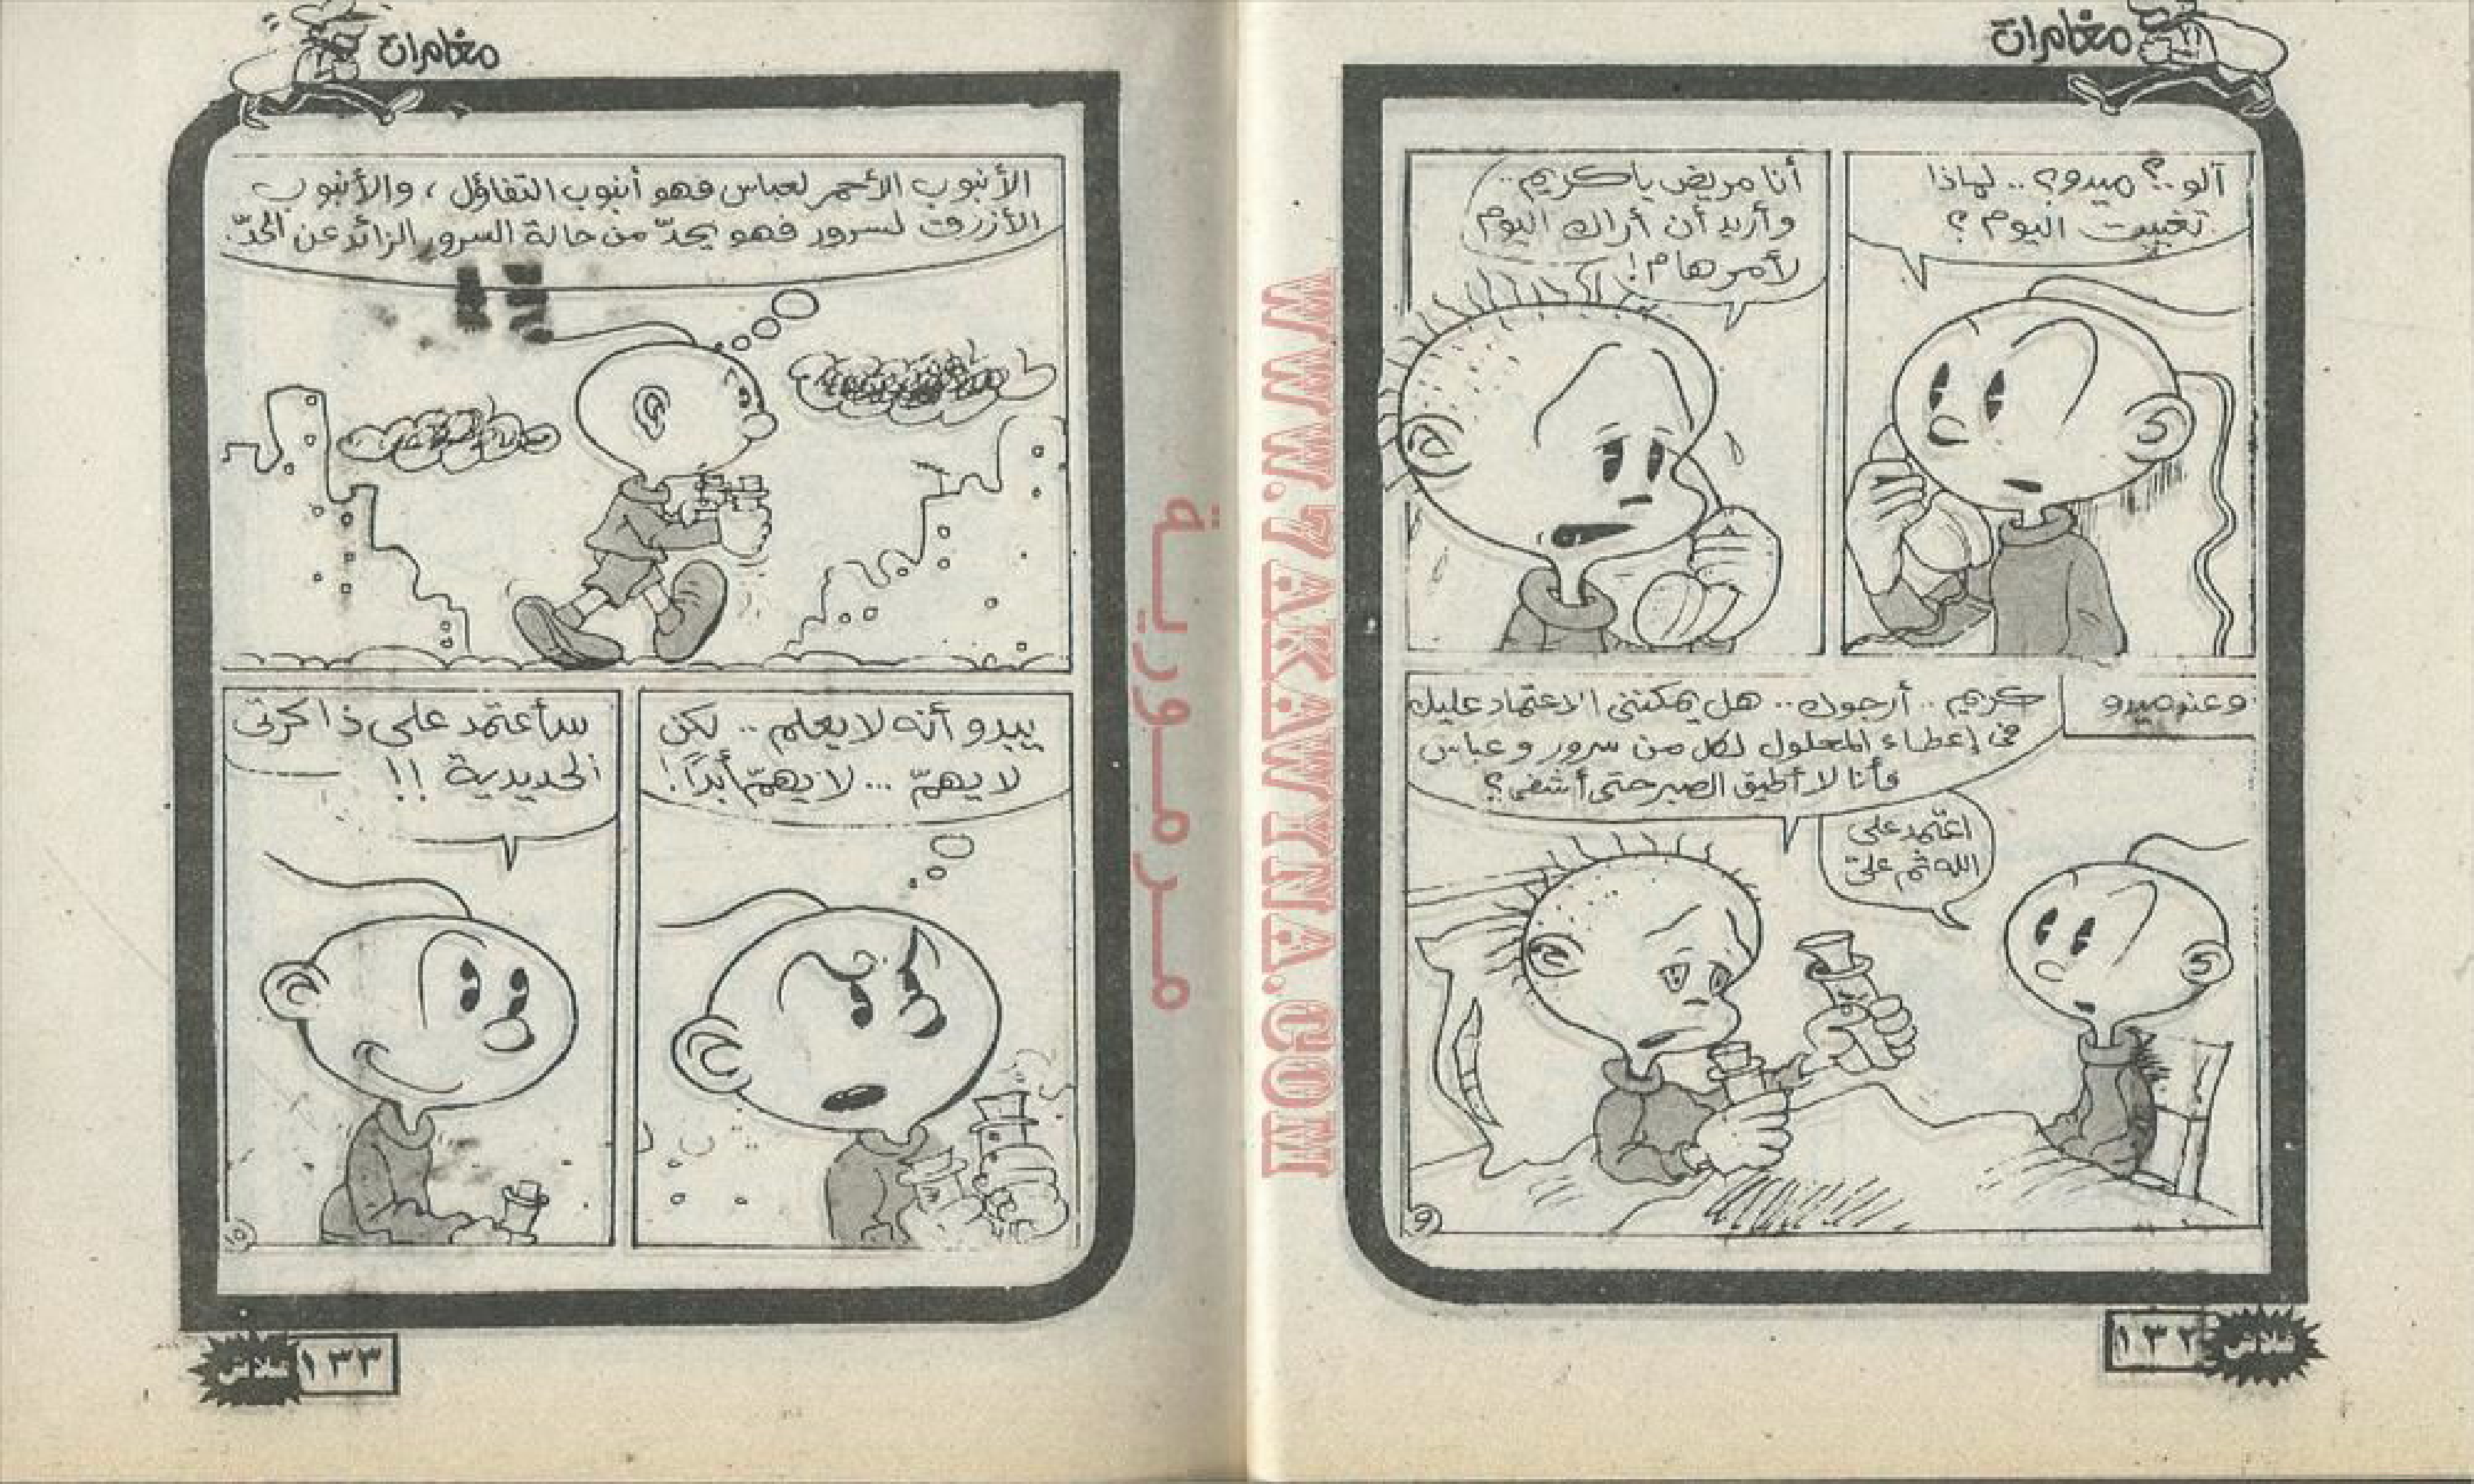 مغامرات
آلو..؟ ميدو؟.. لماذا
تغيبت اليوم؟
أنا مريض يا كريم..
وأريد أن أراك اليوم
لأمر هام!
وعند ميدو
كريم.. أرجوك.. هل يمكننى الاعتماد عليك
فى إعطاء المحلول لكل من سرور وعباس
فأنا لا أطيق الصبر حتى أشفى؟
اعتمد على
الله ثم علىّ
٩
١٣٢
فلاش
WWW.ZAKAWKNA.COM
مرمورية
مغامرات
الأنبوب الأحمر لعباس فهو أنبوب التفاؤل، والأنبوب
الأزرق لسرور فهو يحدّ من حالة السرور الزائد عن الحدّ
يبدو أنه لا يعلم.. لكن
لا يهمّ... لا يهمّ أبدًا!
سأعتمد على ذاكرتى
الحديدية!!
١٠
١٣٣
فلاش